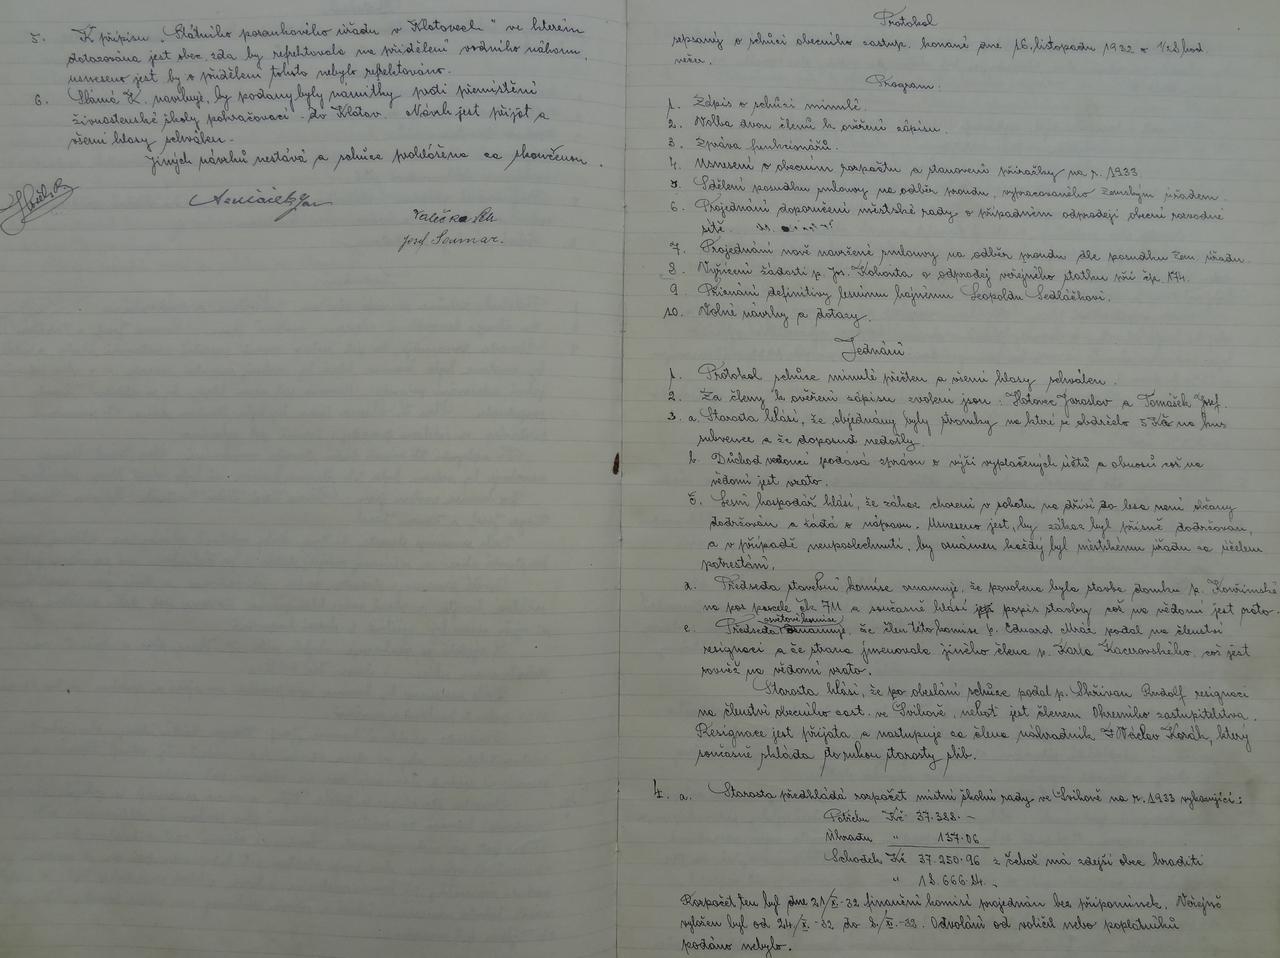 5. K přípisu „Státního pozemkového úřadu v Klatovech" ve kterém
dotazována jest obec, zda by reflektovala na přidělení vodního náhonu,
usneseno jest by o přidělení tohoto nebylo reflektováno.
6. Slámá K. navrhuje, by podány byly námitky proti přemístění
živnostenské školy pokračovací do Klatov. Návrh jest přijat a
všemi hlasy schválen.
Jiných návrhů nestává a schůze prohlášena za skončenou.
Josef Soumar.
Protokol
sepsaný o schůzi obecního zastup. konané dne 16. listopadu 1932 o 1/28 hod.
večer.
Program:
1. Zápis o schůzi minulé.
2. Volba dvou členů k ověření zápisu.
3. Zpráva funkcionářů.
4. Usnesení o obecním rozpočtu a stanovení přirážky na r. 1933.
5. Sdělení posudku smlouvy na odběr proudu, vypracovaného zemským úřadem.
6. Projednání doporučení městské rady o případném odprodeji obecní rozvodné
sítě.
7. Projednání nově navržené smlouvy na odběr proudu dle posudku zem. úřadu.
8. Vyřízení žádosti p. Jos. Kohouta o odprodej veřejného statku při čp. 174.
9. Přiznání definitivy lesnímu hajnému Leopoldu Sedláčkovi.
10. Volné návrhy a dotazy.
Jednání
1. Protokol schůze minulé přečten a všemi hlasy schválen.
2. Za členy k ověření zápisu zvoleni jsou: Jaroslav a Tomášek Josef.
3. a. Starosta hlásí, že objednány byly stromky na které se obdrželo 5 Kč na kus
subvence a že doposud nedošly.
b. Důchod vedoucí podává zprávu o výši vyplacených účtů a obnosů což na
vědomí jest vzato.
č. Lesní hospodář hlásí, že zákaz chození v sobotu na dříví do lesa není občany
dodržován a žádá o nápravu. Usneseno jest, by zákaz byl přísně dodržován,
a v případě neuposlechnutí, by oznámen každý byl městskému úřadu za účelem
potrestání.
d. Předseda stavební komise oznamuje, že povolena byla stavba domku p.
na poz parcele čk 711 a současně hlásí popis stavby což na vědomí jest vzato.
osvětové komise
e. Předseda oznamuje, že člen této komise p. Eduard Mráz podal na členství
resignaci a že strana jmenovala jiného člena p. Karla Kacerovského, což jest
rovněž na vědomí vzato.
Starosta hlásí, že po obeslání schůze podal p. Skřivan Rudolf resignaci
na členství obecního zast. ve Švihově, neboť jest členem Okresního zastupitelstva.
Resignace jest přijata a nastupuje za člena náhradník Václav Korák, který
současně skládá do rukou starosty slib.
4. a. Starosta předkládá rozpočet místní školní rady ve Švihově na r. 1933 vykazující:
Potřebu Kč 37.388.–
Úhradu " 137.06
Schodek Kč 37.250.96 z čehož má zdejší obec hraditi
" 18.666.84.
Rozpočet ten byl dne 21/X.-32 finanční komisí projednán bez připomínek. Veřejně
vyložen byl od 24/X.-32 do 8./XI.-32. Odvolání od voličů nebo poplatníků
podáno nebylo.